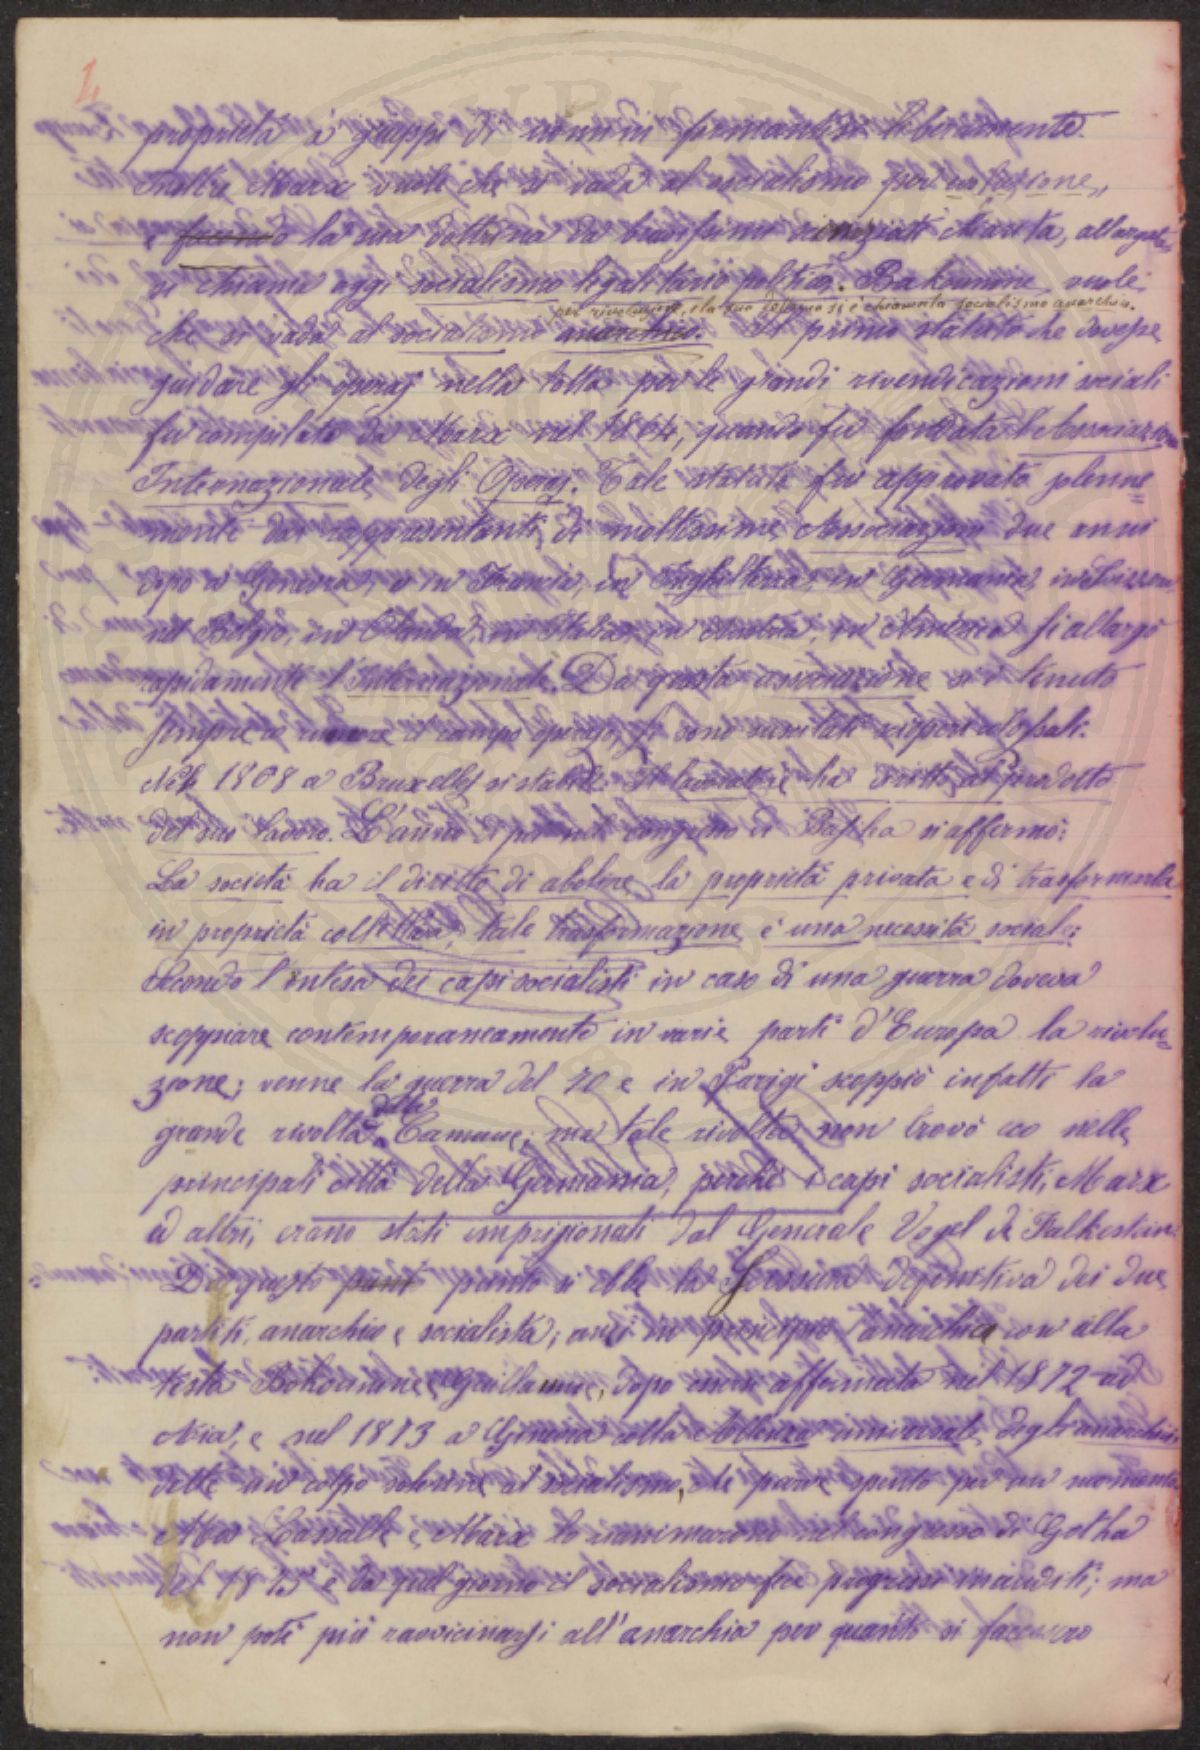 4
proprietà a gruppi di uomini formantisi liberamente.
Inoltre Marx vuole che si vada al socialismo per evoluzione,
e la sua dottrina da tutta, allargata,
si chiama oggi socialismo legalitario politico. Bakounine vuole
per rivoluzione, e la sua dottrina si è chiamata socialismo anarchico.
che si vada al socialismo anarchico. Il primo statuto che dovesse
guidare gli operaj nella lotta per le grandi rivendicazioni sociali
fu compilato da Marx nel 1864, quando fu fondata l'Associazione
Internazionale degli Operaj. Tale statuto fu approvato solenne=
mente dai rappresentanti di moltissime Associazioni due anni
dopo a Ginevra, e in Francia, in Inghilterra, in Germania, in Svizzera,
nel Belgio, in Olanda, in Italia, in Austria, in America si allargò
rapidamente l'Internazionale. Da questa associazione si è tenuto
sempre in il campo operajo, si sono suscitati scioperi colossali.
Nel 1868 a Bruxelles si stabilì: Il lavoratore ha diritto al prodotto
del suo lavoro. L'anno dopo nel congresso di Basilea si affermò:
La società ha il diritto di abolire la proprietà privata e di trasformarla
in proprietà collettiva, tale trasformazione è una necessità sociale;
Secondo l'intesa dei capi socialisti in caso di una guerra doveva
scoppiare contemporaneamente in varie parti d'Europa la rivolu=
zione; venne la guerra del 70 e in Parigi scoppiò infatti la
grande rivolta della Comune; ma tale rivolta non trovò eco nelle
principali città della Germania, perchè i capi socialisti, Marx
ed altri, erano stati imprigionati dal Generale Vogel de Falkestein.
Da questo punto si ebbe la scissura definitiva dei due
partiti, anarchico e socialista; anzi in principio l'anarchia con alla
testa Bakounine e Guillaume, dopo essersi affermata nel 1872 ad
Aia, e nel 1873 a Ginevra colla Alleanza universale degli anarchici,
dette un colpo solenne al socialismo, che parve spento per un momento.
Ma Lassalle e Marx lo rianimarono nel congresso di Gotha
del 1875 e da quel giorno il socialismo fece progressi inauditi; ma
non potè più ravvicinarsi all'anarchia per quanto si facessero